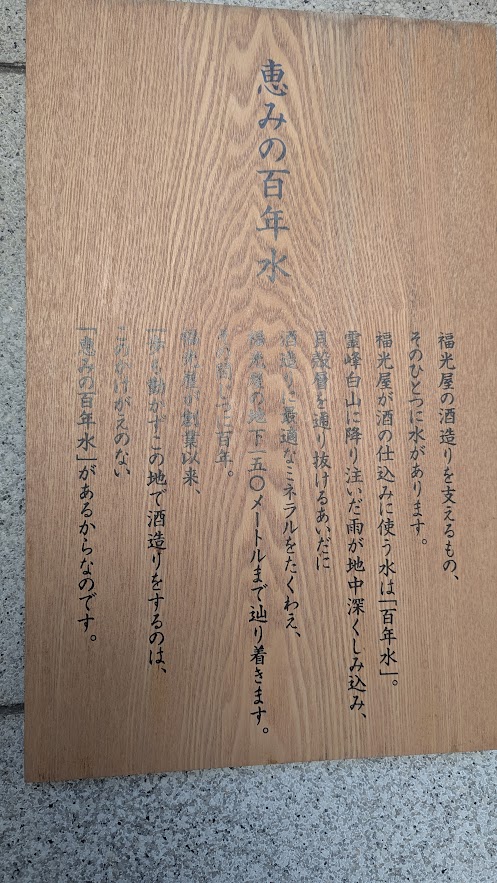 恵みの百年水
福光屋の酒造りを支えるもの、
そのひとつに水があります。
福光屋が酒の仕込みに使う水は「百年水」。
霊峰白山に降り注いだ雨が地中深くしみ込み、
貝殻層を通り抜けるあいだに
酒造りに最適なミネラルをたくわえ、
福光屋の地下一五〇メートルまで辿り着きます。
その間なんと百年。
福光屋が創業以来、
一歩も動かずこの地で酒造りをするのは、
このかけがえのない
「恵みの百年水」があるからなのです。